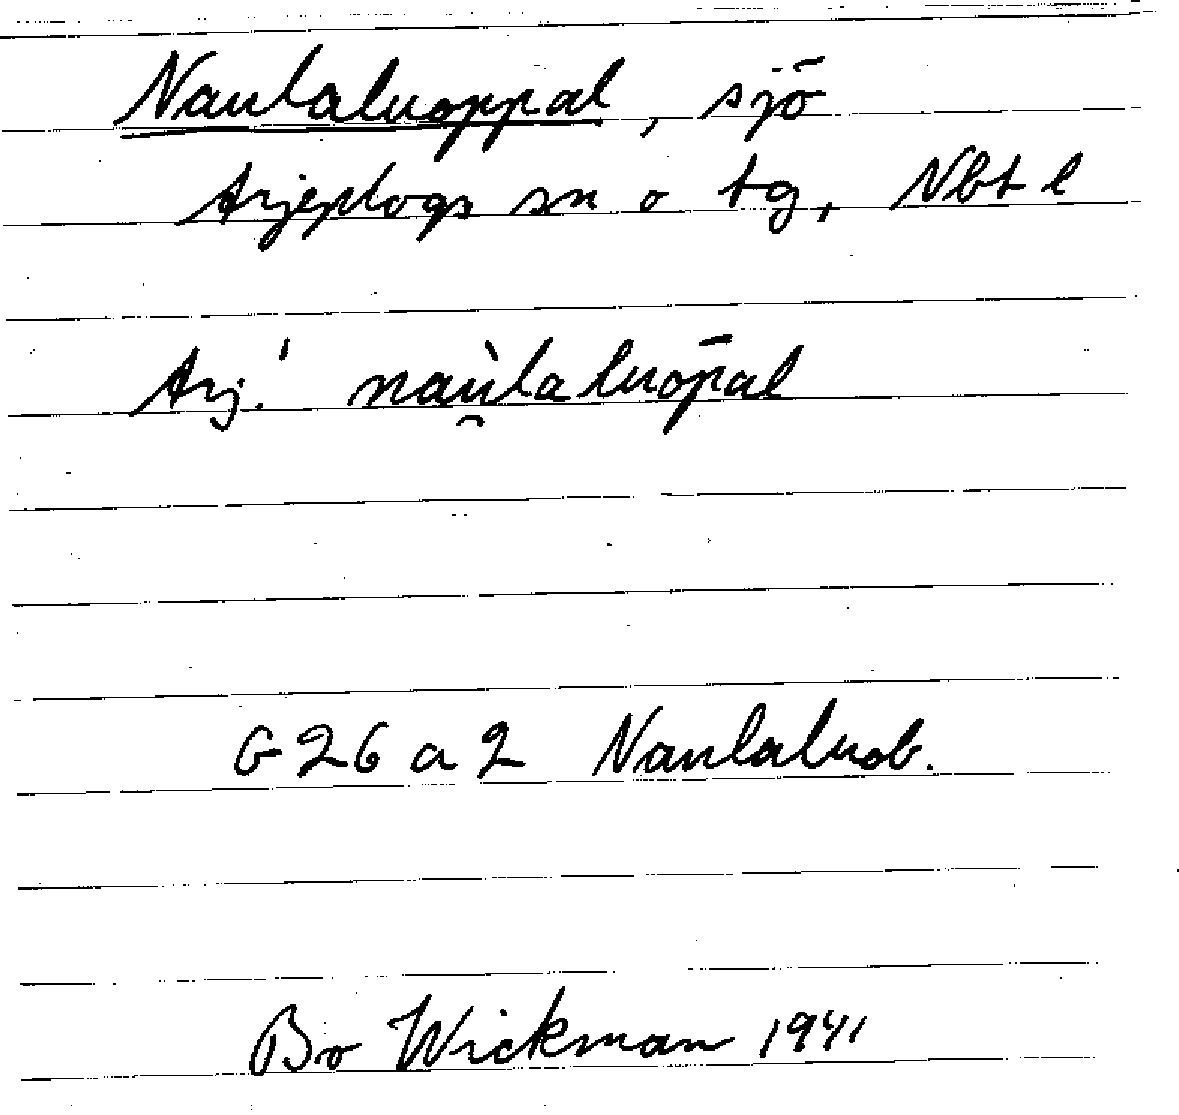 Naulaluoppal, sjö
Arjeplogs sn o tg, Nbt l
Arj.' naùi̯laluōpal
G 26 a 2 Naulaluob.
Bo Wickman 1941